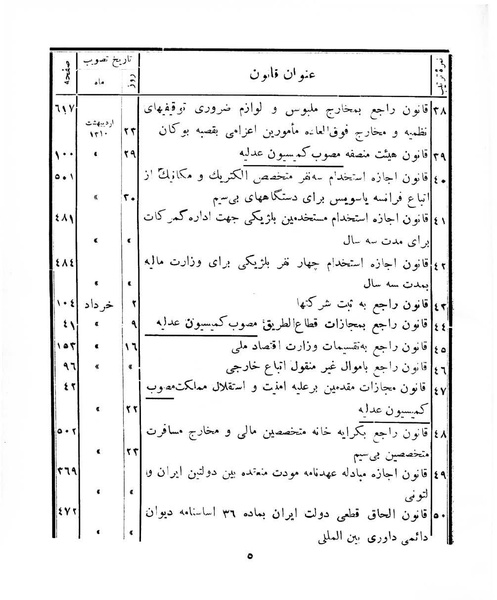 نمرهٔ ترتیب عنوان قانون تاریخ تصویب صفحه
روز ماه
٣٨ قانون راجع بمخارج ملبوس و لوازم ضروری توقیفیهای ٦١٧
نظمیه و مخارج فوق‌العاده مأمورین اعزامی بقصبه بوکان ٢٣ اردیبهشت ١٣١٠
٣٩ قانون هیئت منصفه مصوب کمیسیون عدلیه ٢٩ » ١٠٠
٤٠ قانون اجازه استخدام سه‌نفر متخصص الکتریك و مکانیك از ٥٠١
اتباع فرانسه یاسویس برای دستگاههای بی‌سیم ٣٠ »
٤١ قانون اجازه استخدام مستخدمین بلژیکی جهت اداره گمرکات ٤٨١
برای مدت سه سال » »
٤٢ قانون اجازه استخدام چهار نفر بلژیکی برای وزارت مالیه ٤٨٤
بمدت سه سال » »
٤٣ قانون راجع به ثبت شرکتها ٢ خرداد ١٠٤
٤٤ قانون راجع بمجازات قطاع‌الطریق مصوب کمیسیون عدلیه ٩ » ٤١
٤٥ قانون راجع به‌تقسیمات وزارت اقتصاد ملی ١٦ » ١٥٣
٤٦ قانون راجع باموال غیر منقول اتباع خارجی » » ٩٦
٤٧ قانون مجازات مقدمین برعلیه امنیت و استقلال مملکت مصوب ٤٢
کمیسیون عدلیه ٢٢ »
٤٨ قانون راجع بکرایه خانه متخصصین مالی و مخارج مسافرت ٥٠٢
متخصصین بی‌سیم ٢٣ »
٤٩ قانون اجازه مبادله عهدنامه مودت منعقده بین دولتین ایران و ٣٦٩
لتونی » »
٥٠ قانون الحاق قطعی دولت ایران بماده ٣٦ اساسنامه دیوان ٤٧٢
دائمی داوری بین المللی » »
٥